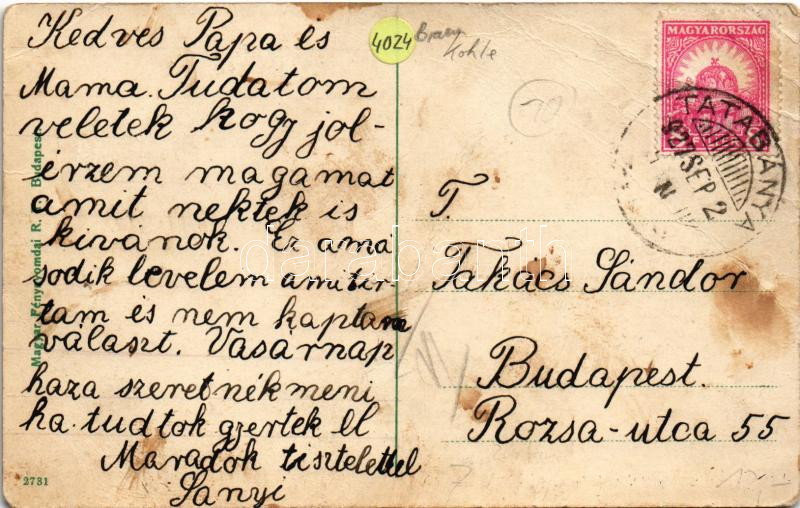 Kedves Papa és
Mama. Tudatom
veletek hogy jol-
érzem magamat
amit nektek is
kivánok. Ez a má
sodik levelem amit ir-
tam és nem kaptam
választ. Vasárnap
haza szeretnék meni
ha tudtok gyertek el
Maradok tisztelettel
Sanyi
2731
Magyar Fénynyomdai R. Budapest
4024
Kohle
70
MAGYARORSZÁG
TATABÁNYA
927 SEP 2
T.
Takács Sándor
Budapest.
Rozsa-utca 55
darabanth